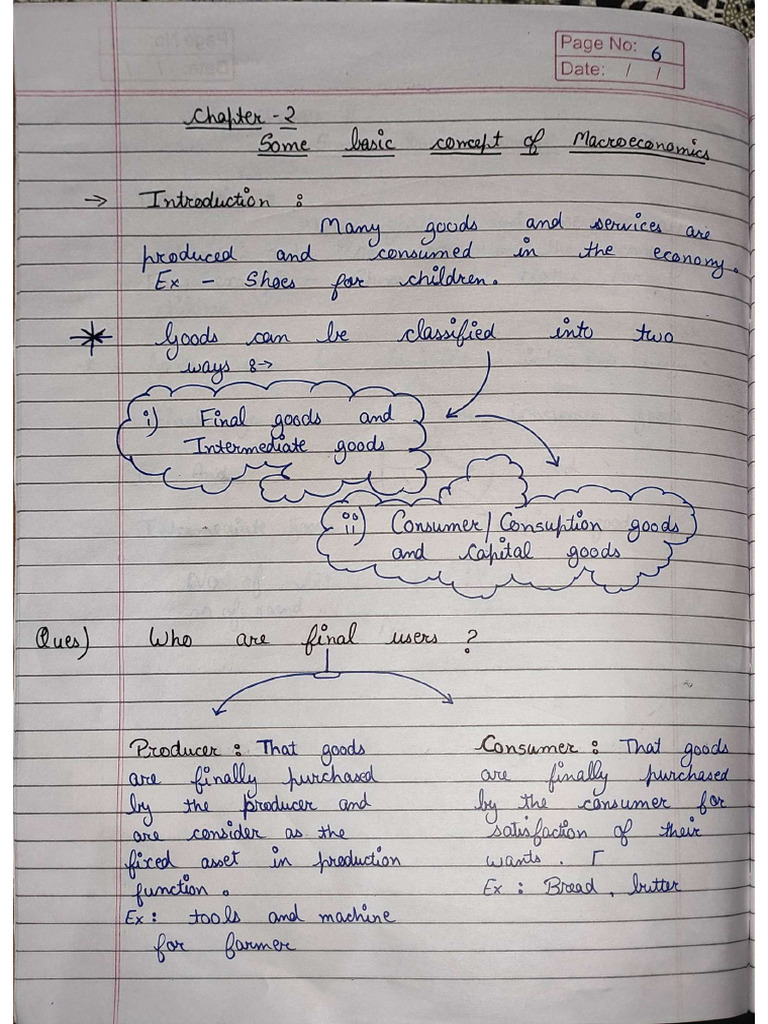 Page No: 6
Date: / /
Chapter - 2
Some basic concept of Macroeconomics
→ Introduction :
Many goods and services are
produced and consumed in the economy.
Ex - Shoes for children.
Goods can be classified into two
ways :→
i) Final goods and
Intermediate goods
ii) Consumer/Consuption goods
and capital goods
Ques) Who are final users ?
Producer : That goods
are finally purchased
by the producer and
are consider as the
fixed asset in production
function.
Ex: tools and machine
for farmer
Consumer : That goods
are finally purchased
by the consumer for
satisfaction of their
wants.
Ex : Bread, butter